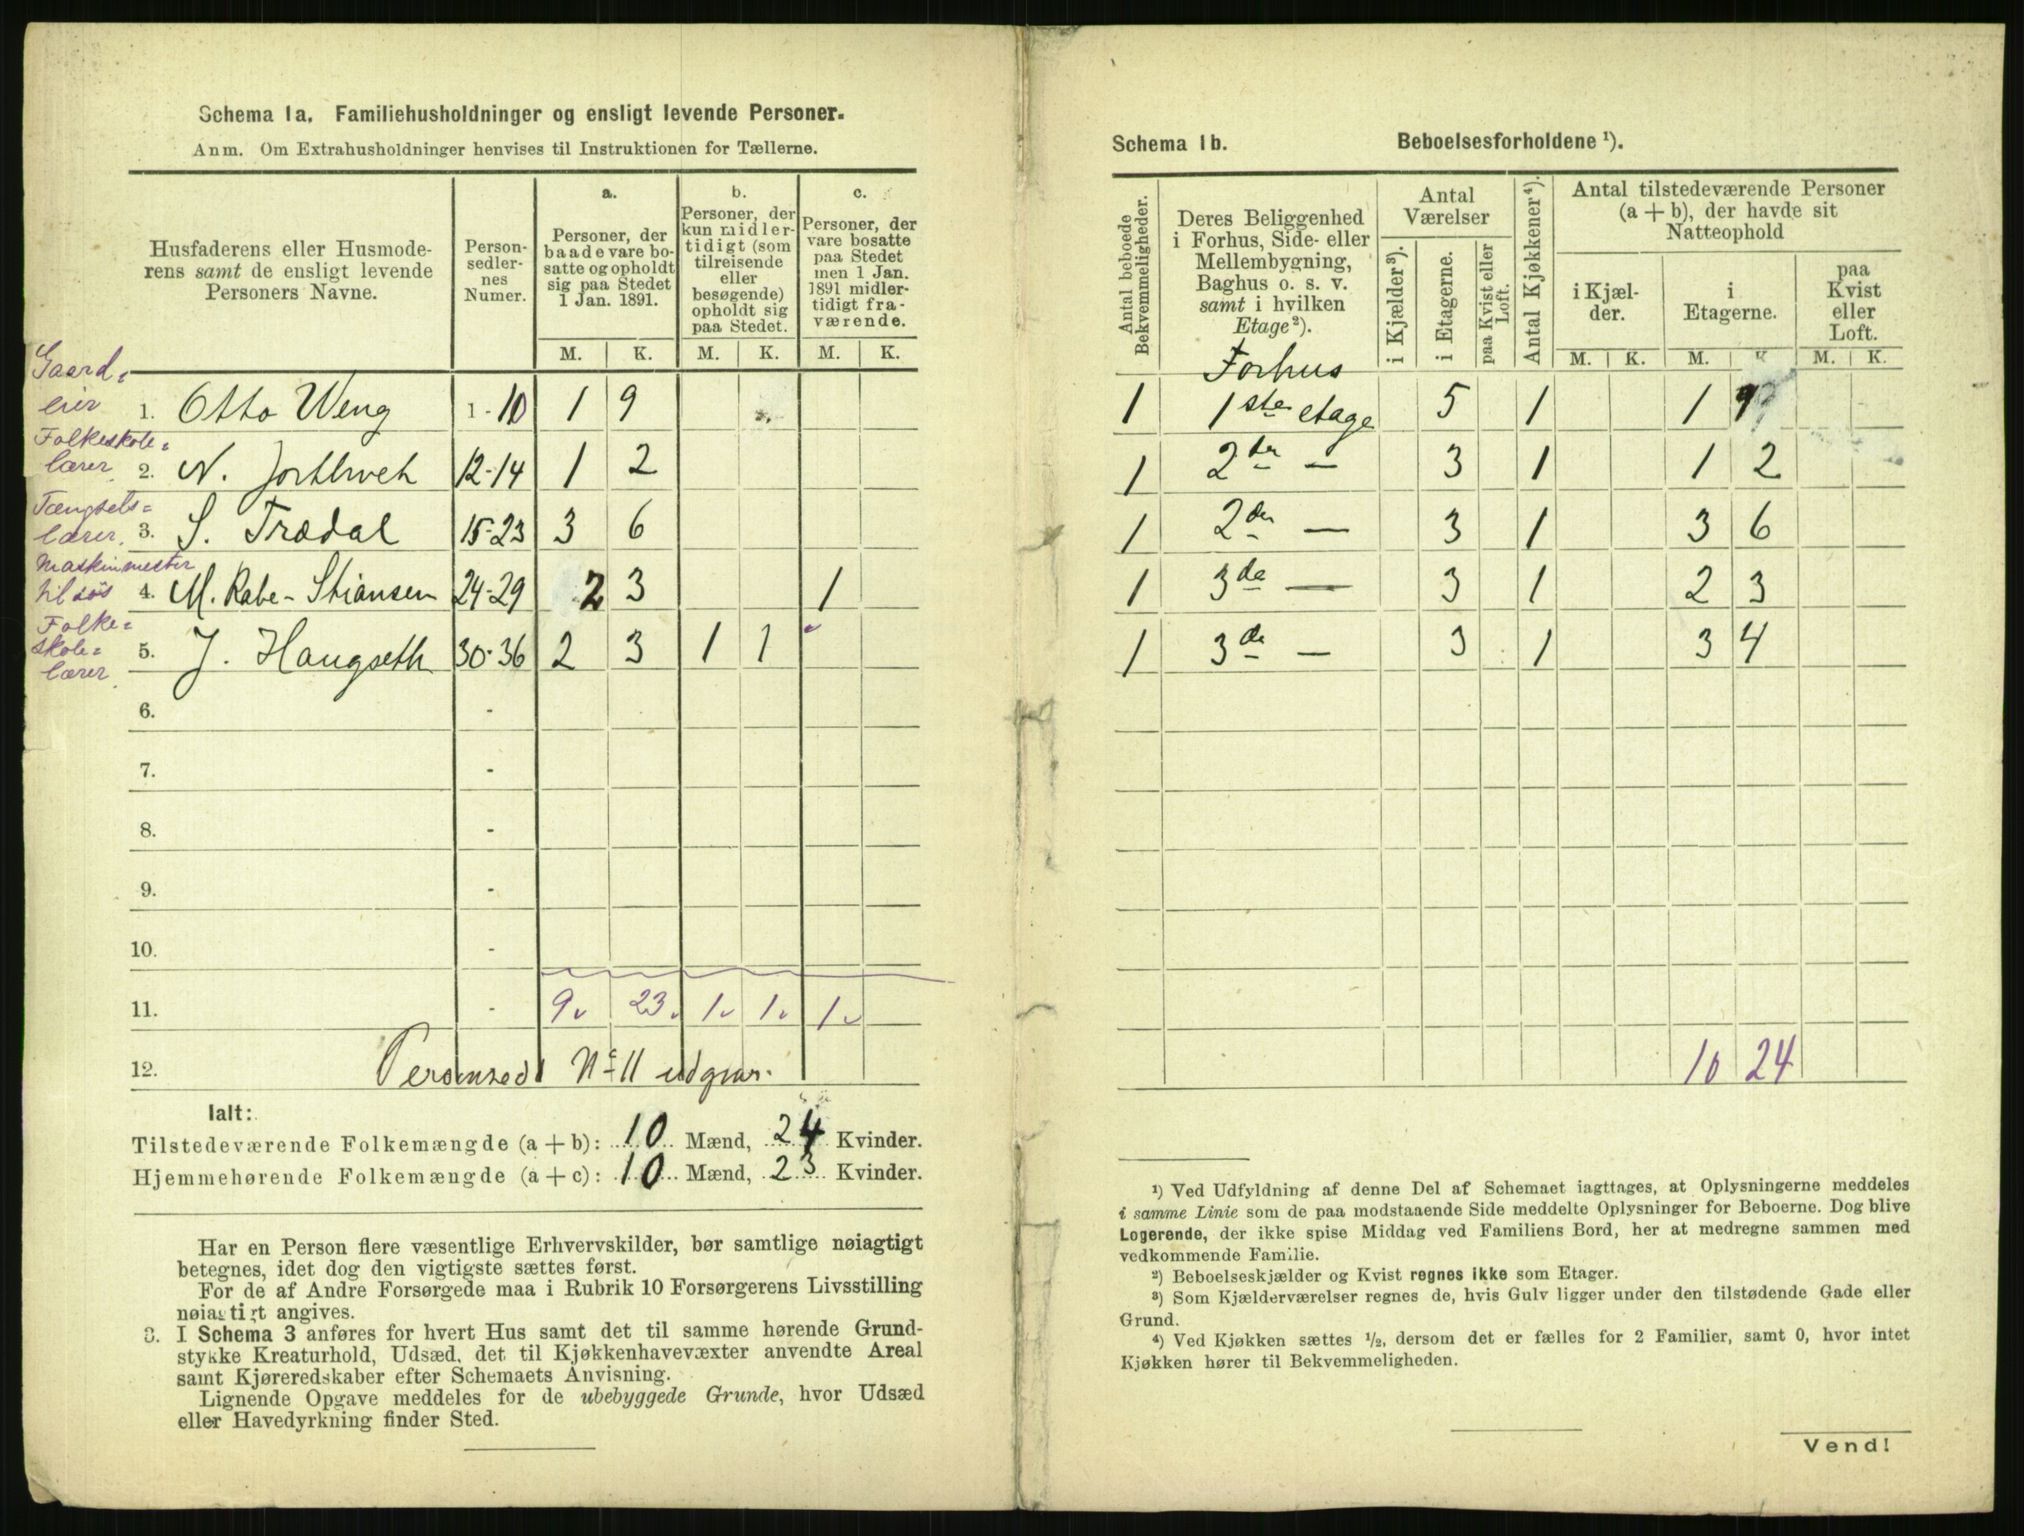 Schema 1a. Familiehusholdninger og ensligt levende Personer.
Anm. Om Extrahusholdninger henvises til Instruktionen for Tællerne.
Husfaderens eller Husmode-
rens samt de ensligt levende
Personers Navne.
Person-
sedler-
nes
Numer.
a.
Personer, der
baade vare bo-
satte og opholdt
sig paa Stedet
1 Jan. 1891.
b.
Personer, der
kun midler-
tidigt (som
tilreisende
eller
besøgende)
opholdt sig
paa Stedet.
c.
Personer, der
vare bosatte
paa Stedet
men 1 Jan.
1891 midler-
tidigt fra-
værende.
M. K. M. K. M. K.
Gaard-
eier
1. Otto Weng 1-10 1 9
Folkeskole-
lærer
2. N. 12-14 1 2
lærer.
3. S. Trædal 15-23 3 6
Maskinmester
til søs
4. M. Rabe-Stiansen 24-29 2 3 1
Folke-
skole-
lærer
5. J. Haugseth 30-36 2 3 1 1
6. -
7. -
8. -
9. -
10. -
11. - 9 23 1 1 1
12. No 11 udgaar.
Ialt:
Tilstedeværende Folkemængde (a+b): 10 Mænd, 24 Kvinder.
Hjemmehørende Folkemængde (a+c): 10 Mænd, 23 Kvinder.
Har en Person flere væsentlige Erhvervskilder, bør samtlige nøiagtigt
betegnes, idet dog den vigtigste sættes først.
For de af Andre Forsørgede maa i Rubrik 10 Forsørgerens Livsstilling
nøiagtigt angives.
3. I Schema 3 anføres for hvert Hus samt det til samme hørende Grund-
stykke Kreaturhold, Udsæd, det til Kjøkkenhavevæxter anvendte Areal
samt Kjøreredskaber efter Schemaets Anvisning.
Lignende Opgave meddeles for de ubebyggede Grunde, hvor Udsæd
eller Havedyrkning finder Sted.
Schema 1b. Beboelsesforholdene ¹).
Antal beboede
Bekvemmeligheder.
Deres Beliggenhed
i Forhus, Side- eller
Mellembygning,
Baghus o. s. v.
samt i hvilken
Etage²).
Antal
Værelser
i Kjælder³).
i Etagerne.
paa Kvist eller
Loft.
Antal Kjøkkener⁴).
Antal tilstedeværende Personer
(a + b), der havde sit
Natteophold
i Kjæl-
der.
i
Etagerne.
paa
Kvist
eller
Loft.
M. K. M. K. M. K.
Forhus
1 1ste etage 5 1 1 9
1 2den — 3 1 1 2
1 2den — 3 1 3 6
1 3de — 3 1 2 3
1 3de — 3 1 3 4
10 24
¹) Ved Udfyldning af denne Del af Schemaet iagttages, at Oplysningerne meddeles
i samme Linie som de paa modstaaende Side meddelte Oplysninger for Beboerne. Dog blive
Logerende, der ikke spise Middag ved Familiens Bord, her at medregne sammen med
vedkommende Familie.
²) Beboelseskjælder og Kvist regnes ikke som Etager.
³) Som Kjælderværelser regnes de, hvis Gulv ligger under den tilstødende Gade eller
Grund.
⁴) Ved Kjøkken sættes ½, dersom det er fælles for 2 Familier, samt 0, hvor intet
Kjøkken hører til Bekvemmeligheden.
Vend!